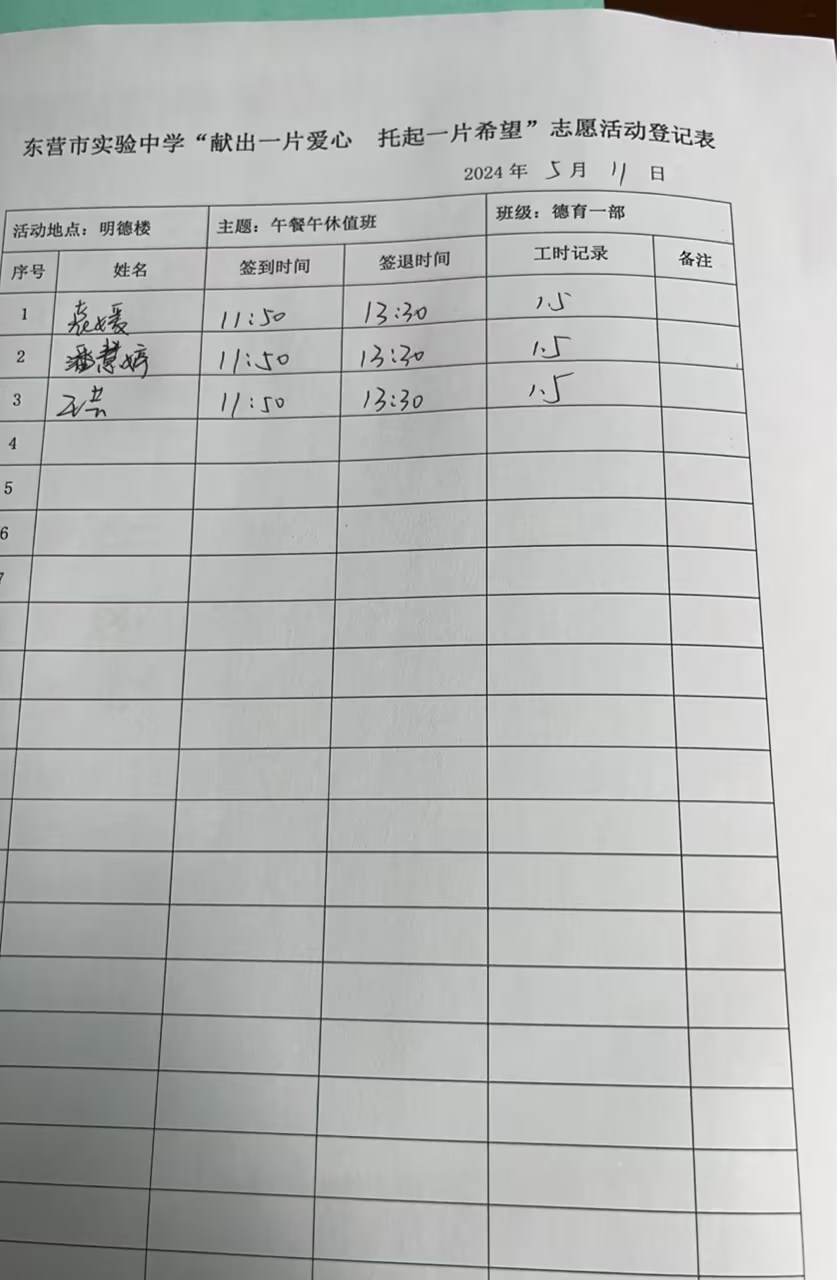 东营市实验中学“献出一片爱心 托起一片希望”志愿活动登记表
2024 年 5 月 11 日
活动地点：明德楼 主题：午餐午休值班 班级：德育一部
序号 姓名 签到时间 签退时间 工时记录 备注
1 袁媛 11:50 13:30 1.5
2 潘慧婷 11:50 13:30 1.5
3 11:50 13:30 1.5
4
5
6
7